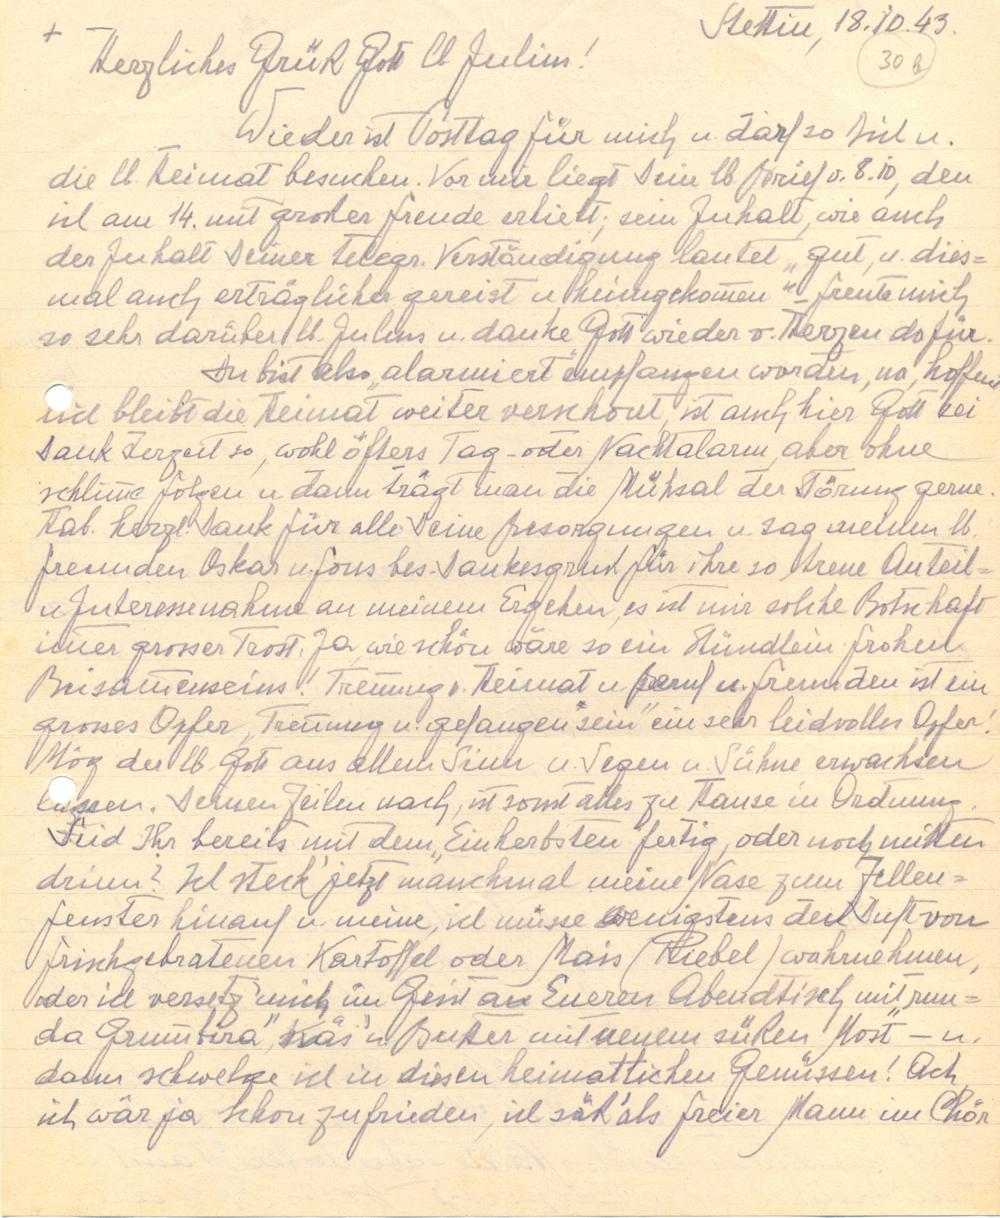 Stettin, 18.10.43.
30 b
+
Herzliches Grüß Gott lb Julius!
Wieder ist Posttag für mich u. darf so Dich u.
die lb. Heimat besuchen. Vor mir liegt Dein lb Brief v. 8.10, den
ich am 14. mit großer Freude erhielt; sein Inhalt, wie auch
der Inhalt Deiner telegr. Verständigung lautet „gut, u. dies=
mal auch erträglicher gereist u heimgekomen" – freute mich
so sehr darüber lb. Julius u. danke Gott wieder v. Herzen dafür.
Du bist also „alarmiert" empfangen worden, na, hoffent
lich bleibt die Heimat weiter verschont, ist auch hier Gott sei
Dank derzeit so, wohl öfters Tag- oder Nachtalarm, aber ohne
schlime Folgen u dann trägt man die Mühsal der Störung gerne.
Hab. herzl. Dank für alle Deine Besorgungen u sag meinen lb.
Freunden Oskar u. Fons bes. Dankesgruß für ihre so treue Anteil=
u Interessenahme an meinem Ergehen, es ist mir solche Botschaft
imer grosser Trost. Ja, wie schön wäre so ein Stündlein frohen
Beisamenseins! Trenung v. Heimat u Beruf u. Freunden ist ein
grosses Opfer, Trenung u. gefangen „sein" ein sehr leidvolles Opfer!
Mög der lb Gott aus allem Sinn u. Segen u. Sühne erwachsen
lassen. Deinen Zeilen nach, ist sonst alles zu Hause in Ordnung.
Seid Ihr bereits mit dem „Einherbsten" fertig, oder noch mitten
drinn? Ich steck' jetzt manchmal meine Nase zum Zellen=
fenster hinauf u. meine, ich müsse wenigstens den Duft von
frischgebratenen Kartoffel oder Mais (Riebel) wahrnehmen,
oder ich versetz' mich im Geist an Eueren Abendtisch mit „run=
da Grumbira", Käs' u Butter mit neuem süßen Most" – u.
dann schwelge ich in diesen heimatlichen Genüssen! Ach,
ich wär ja schon zufrieden, ich säh' als freier Mann im Chor